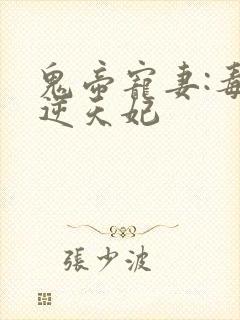 鬼帝寵妻:毒
逆天妃
張少波